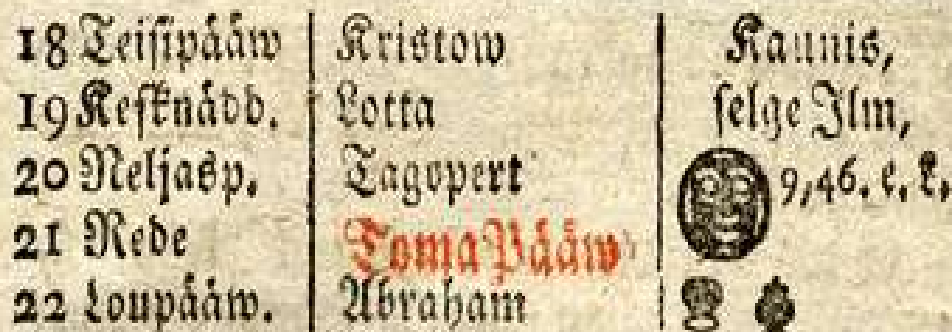 18 Teisipääw Kristow Kaunis,
19 Kesknädd. Lotta selge Ilm,
20 Neljasp. Tagopert 9,46. e. k,
21 Rede Toma Pääw
22 Loupääw. Abraham